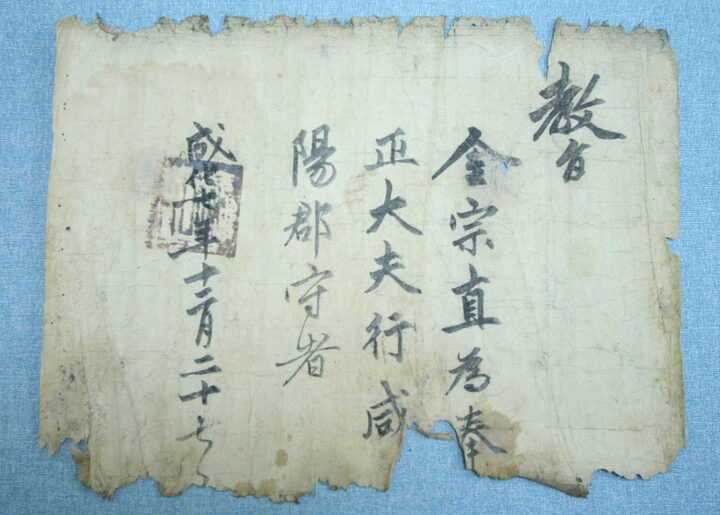 教旨
金宗直為奉
正大夫行咸
陽郡守者
成化七年十二月二十七日